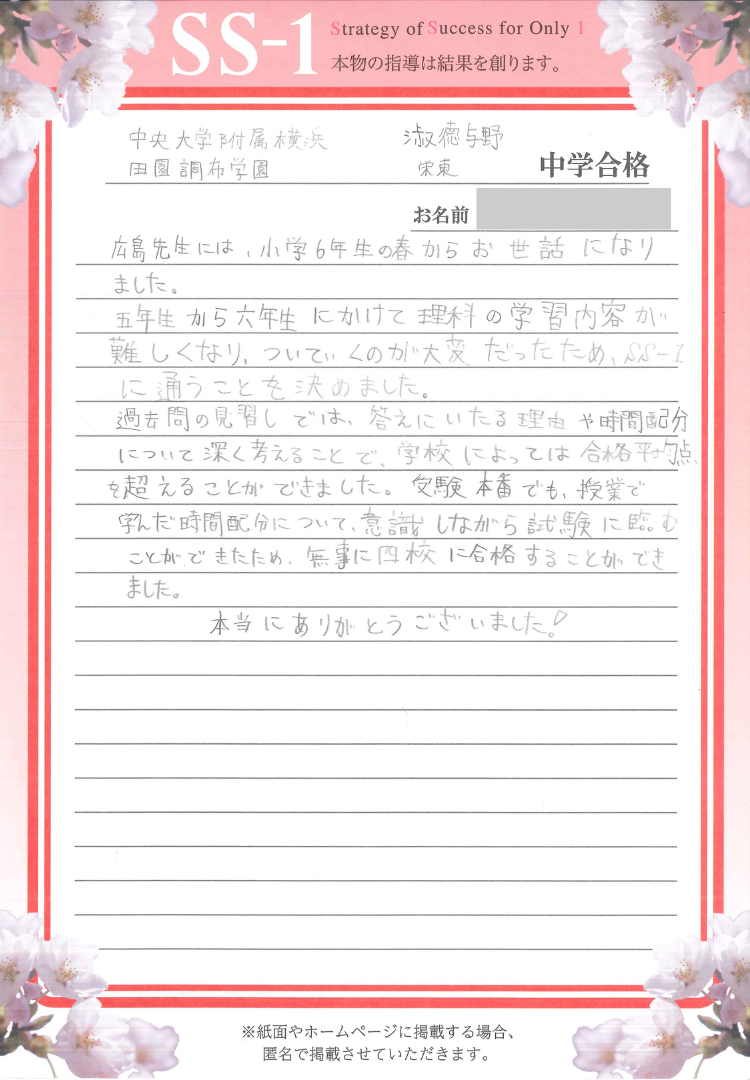 SS-1
Strategy of Success for Only 1
本物の指導は結果を創ります。
中央大学附属横浜 淑徳与野
田園調布学園 栄東 中学合格
お名前
広島先生には、小学6年生の春からお世話になり
ました。
五年生から六年生にかけて理科の学習内容が
難しくなり、ついていくのが大変だったため、SS-1
に通うことを決めました。
過去問の見習しでは、答えにいたる理由や時間配分
について深く考えることで、学校によっては合格平均点
を超えることができました。受験本番でも、授業で
学んだ時間配分について、意識しながら試験に臨む
ことができたため、無事に四校に合格することができ
ました。
本当にありがとうございました!
※紙面やホームページに掲載する場合、
匿名で掲載させていただきます。